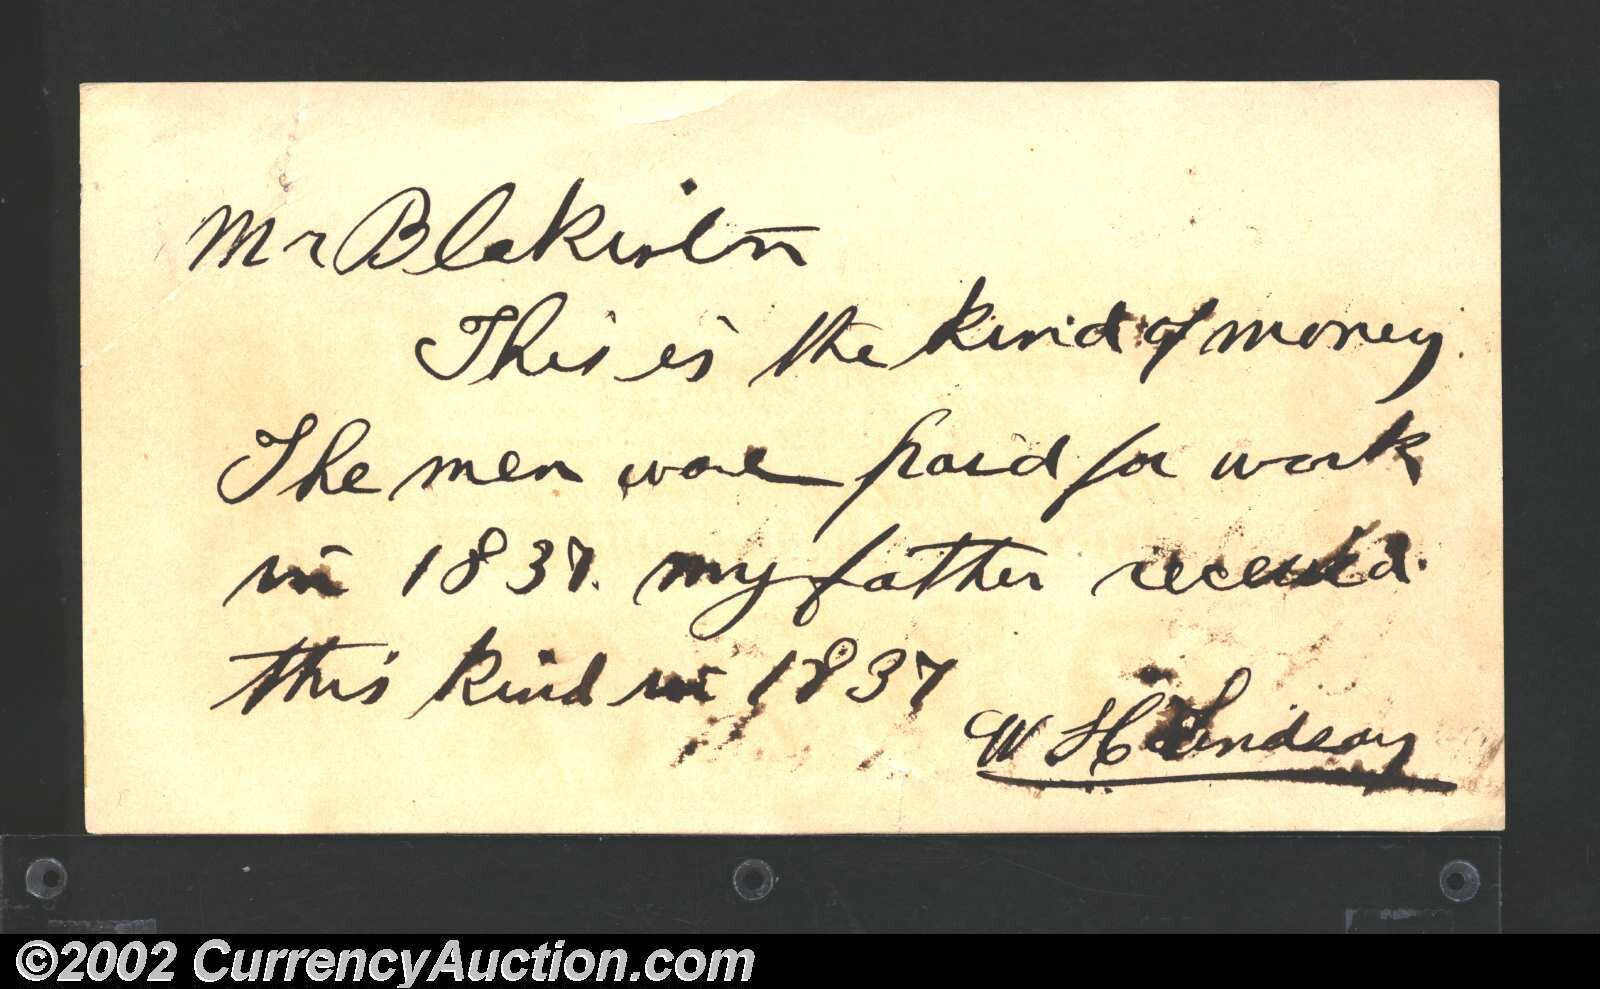 Mr Blakiston
This is the kind of money
The men ware paid for work
in 1837. my father received.
this kind in 1837
W H Lindsay
©2002 CurrencyAuction.com